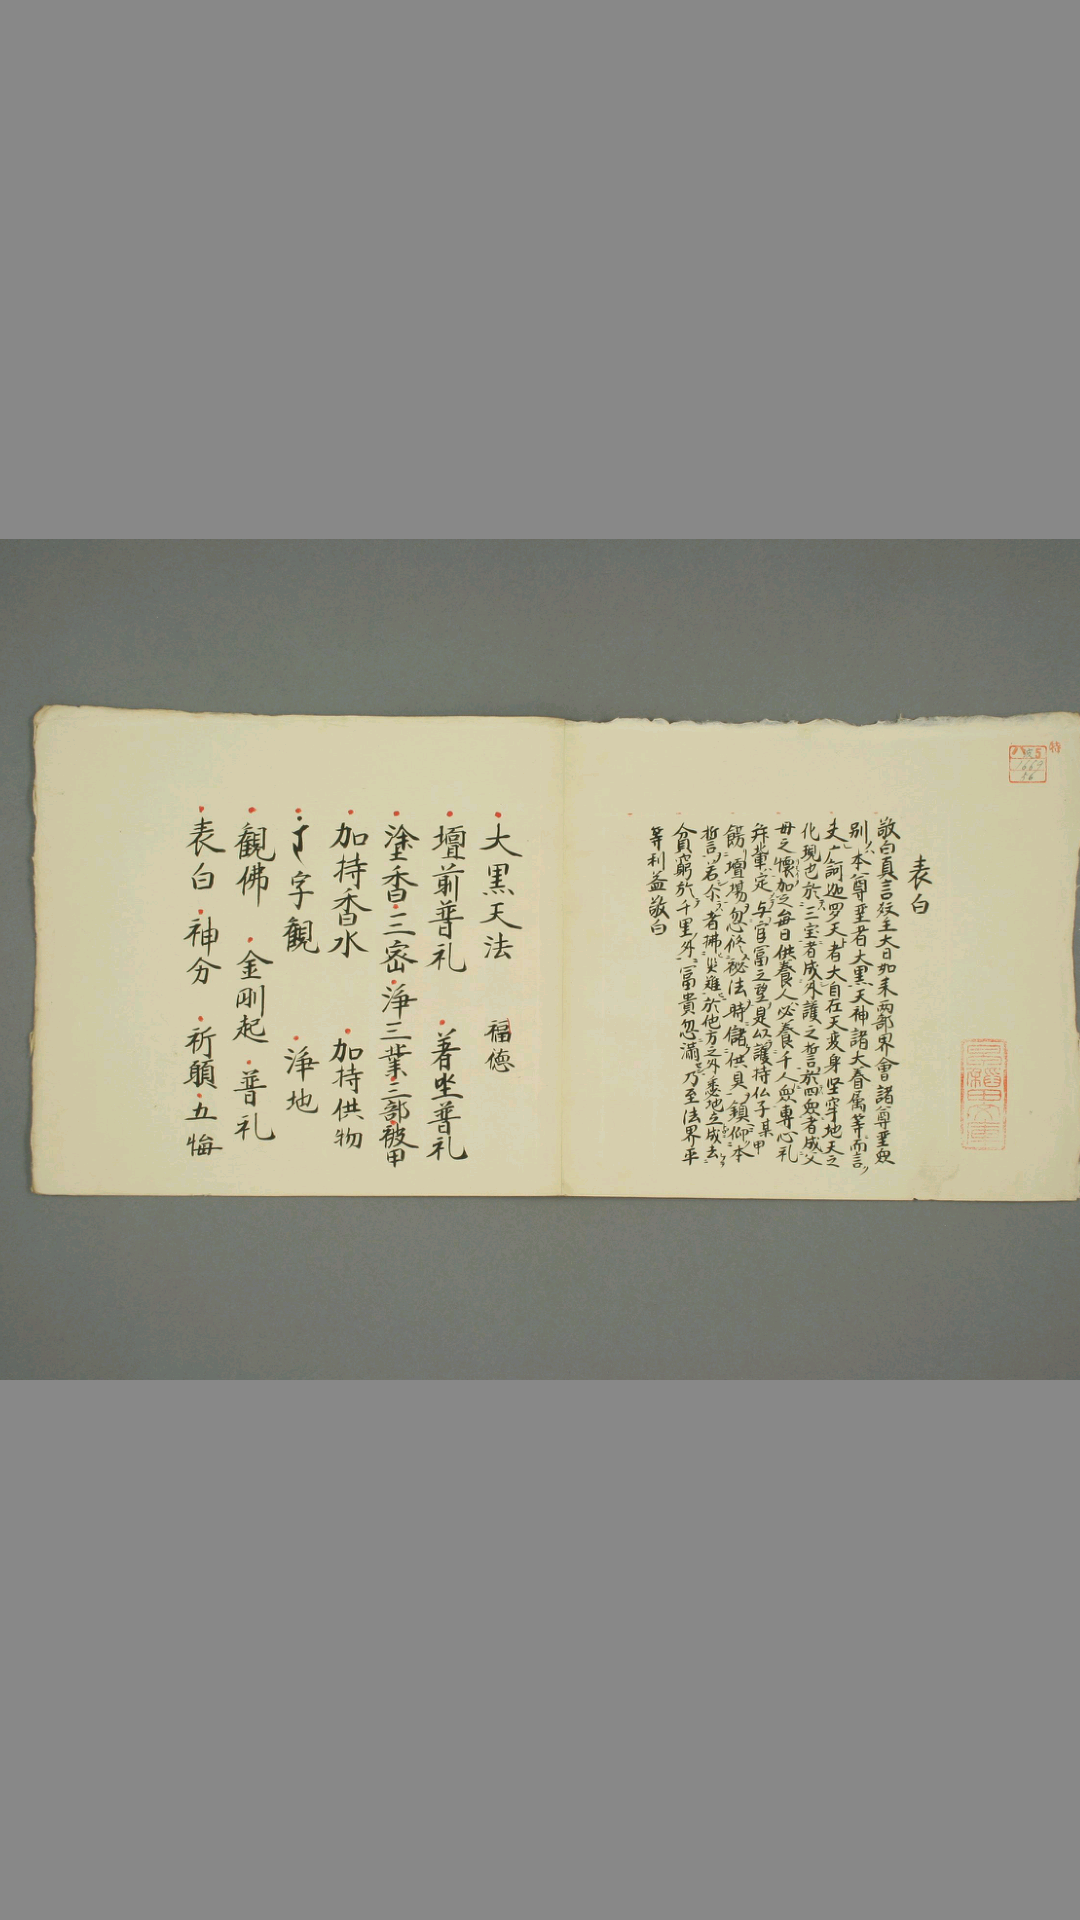 特
ハ5
1669
56
表白
敬白真言教主大日如来両部界會諸尊聖衆
別本尊聖者大黒天神諸大眷属等而言
夫摩訶迦罗天者大自在天変身堅牢地天之
化現也於三宝者成外護之誓於四衆者成父
母之懐加之毎日供養人必養千人衆専心礼
拜輩定与官冨之望是以護持仏子某甲
餝壇場忽修秘法時儲供具鎮仰本
誓若尒者拂災難於他方之外悉地立成去
貧窮於千里外冨貴忽満乃至法界平
等利益敬白
大黒天法 福德
壇前普礼 著坐普礼
塗香三密淨三業三部被甲
加持香水 加持供物
字觀 淨地
觀佛 金剛起 普礼
表白 神分 祈願 五悔